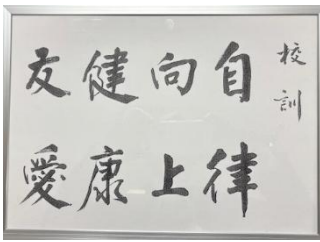 校訓
自律
向上
健康
友愛